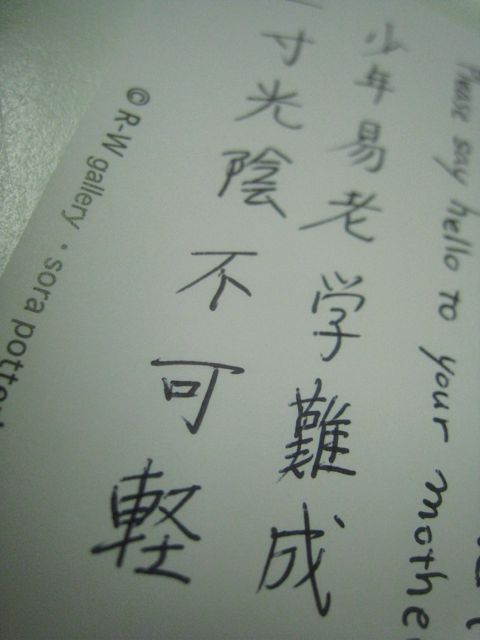 Please say hello to your mothe
少年易老学難成
一寸光陰不可軽
© R-W gallery · sora potte